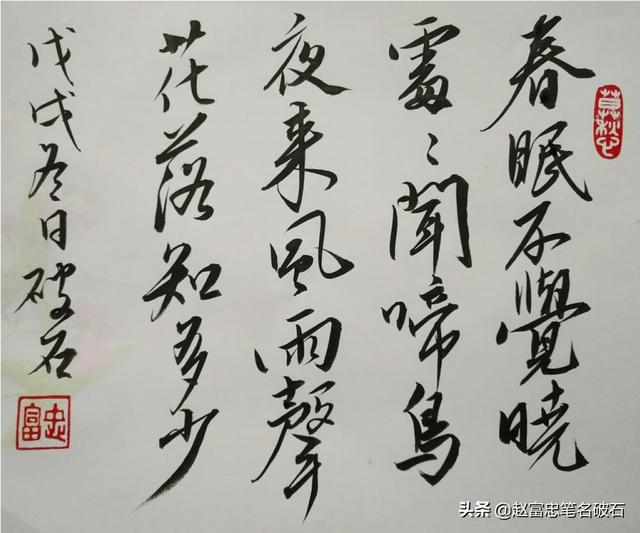 春眠不覺曉
處〻聞啼鳥
夜来風雨聲
花落知多少
戊戌冬日破石
富忠
头条 @赵富忠笔名破石